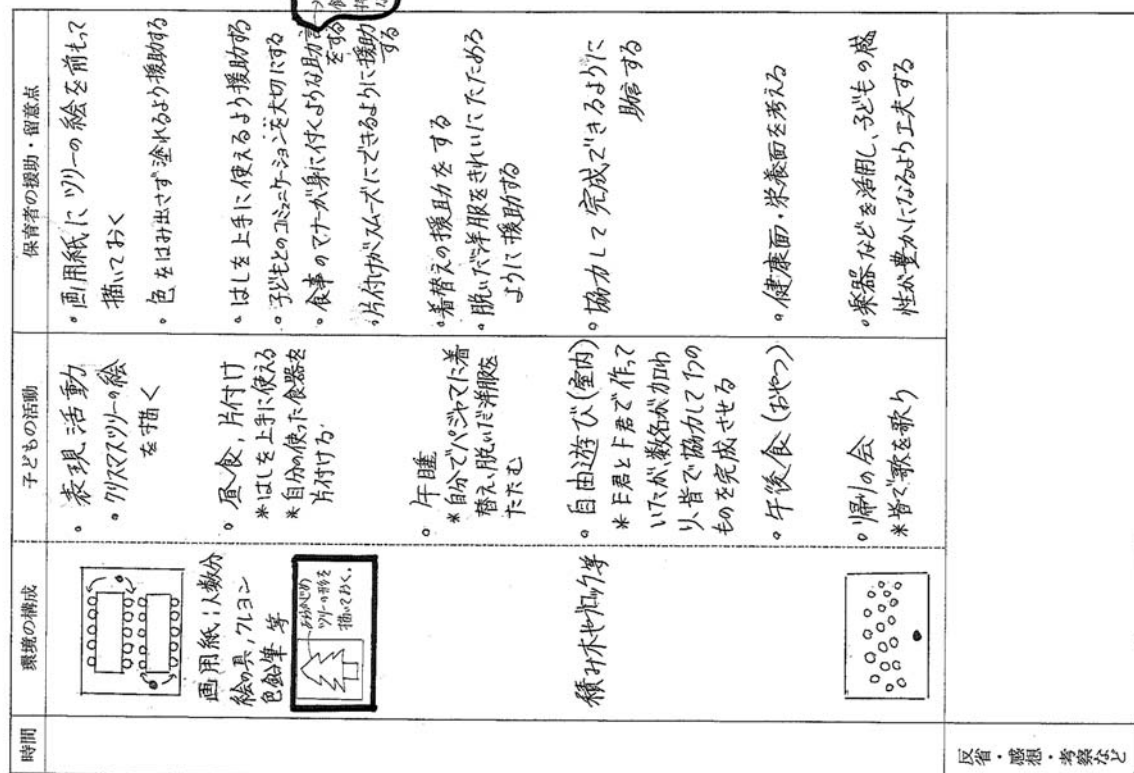 時間
環境の構成
子どもの活動
保育者の援助・留意点
画用紙:人数分
絵の具,クレヨン
色鉛筆 等
あらかじめ
ツリーの形を
描いておく。
。表現活動
・クリスマスツリーの絵
を描く
・画用紙にツリーの絵を前もって
描いておく
・色をはみ出さず塗れるよう援助する
。昼食,片付け
*はしを上手に使える
*自分の使った食器を
片付ける
・はしを上手に使えるよう援助する
・子どもとのコミュニケーションを大切にする
・食事のマナーが身に付くような助言
をする
・片付けがスムーズにできるように援助
する
。午睡
*自分でパジャマに着
替え,脱いだ洋服を
たたむ
・着替えの援助をする
・脱いだ洋服をきれいにたためる
ように援助する
積み木やブロック等
。自由遊び(室内)
君と
君で作って
いたが、数名が加わ
り、皆で協力して1つの
ものを完成させる
。協力して完成できるように
助言する
。午後食(おやつ)
・健康面・栄養面を考える
。帰りの会
*皆で歌を歌う
・楽器などを活用し、子どもの感
性が豊かになるよう工夫する
反省・感想・考察など